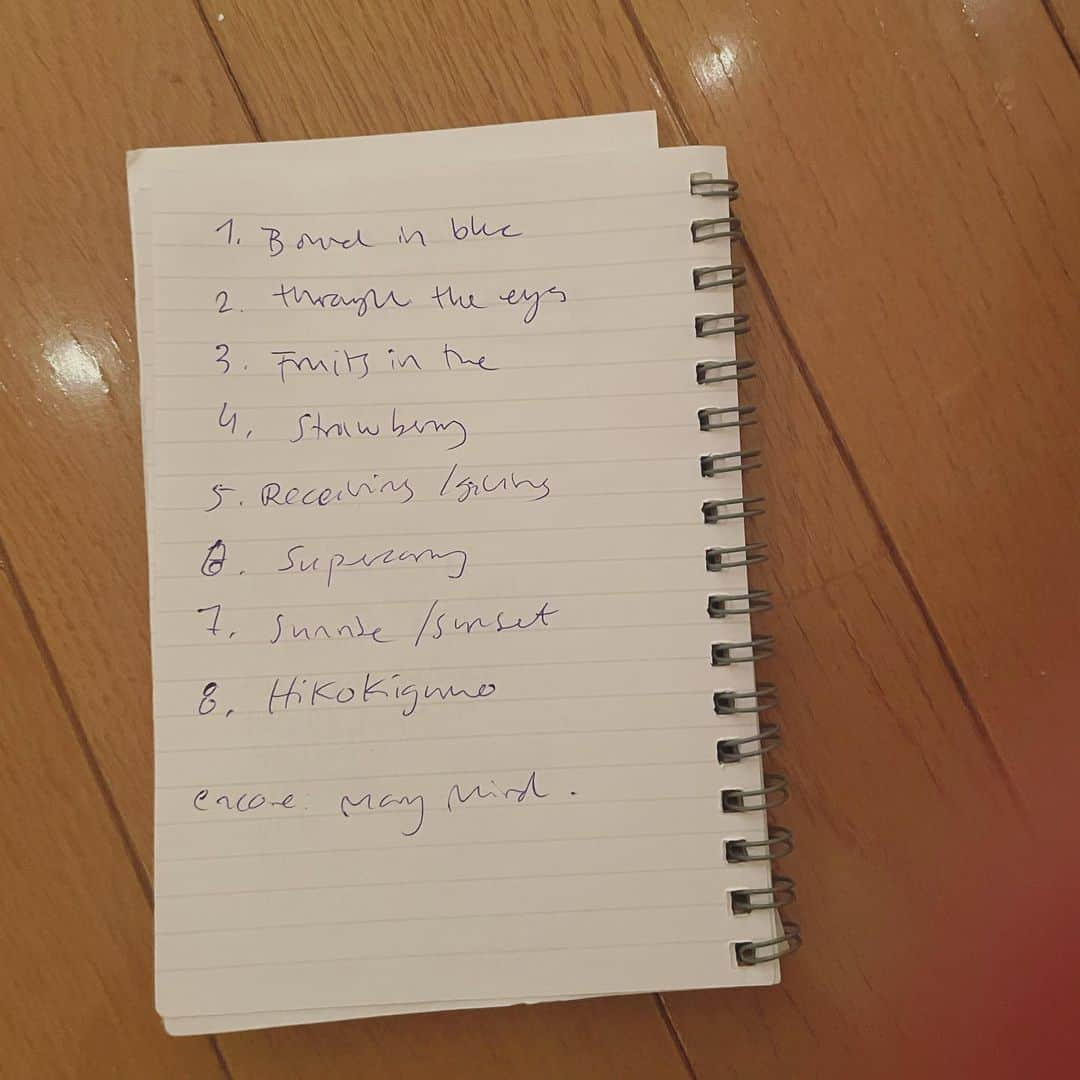 1. Bound in blue
2. through the eyes
3. Fruits in the
4. Strawberry
5. Receiving /giving
6.
7. Sunrise /sunset
8. Hikokigumo
encore: May Mind.